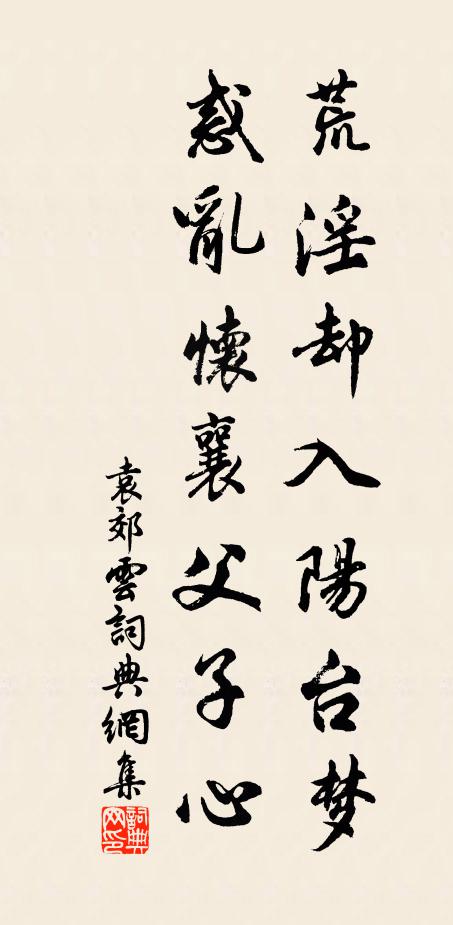 荒淫却入陽台梦
惑亂懷襄父子心
袁郊雲詞典網集
詞典网印